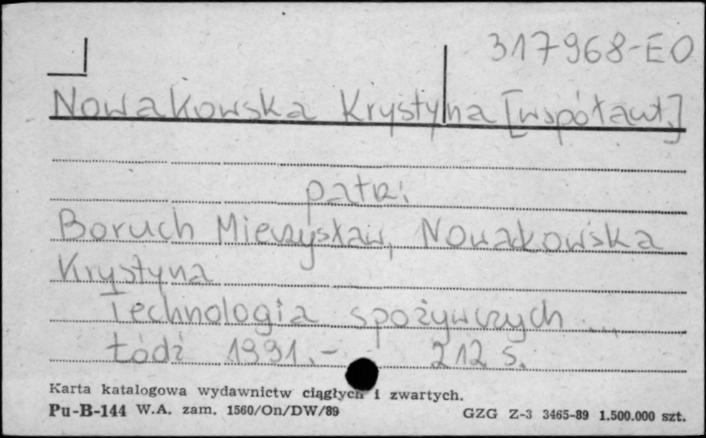 317968-EO
Nowakowska Krystyna [współaut.]
patrz:
Boruch Mieczysław, Nowakowska
Krystyna
Technologia spożywczych ...
Łódź 1991.- 212 s.
Karta katalogowa wydawnictw ciągłych i zwartych.
Pu-B-144 W.A. zam. 1560/On/DW/89 GZG Z-3 3465-89 1.500.000 szt.